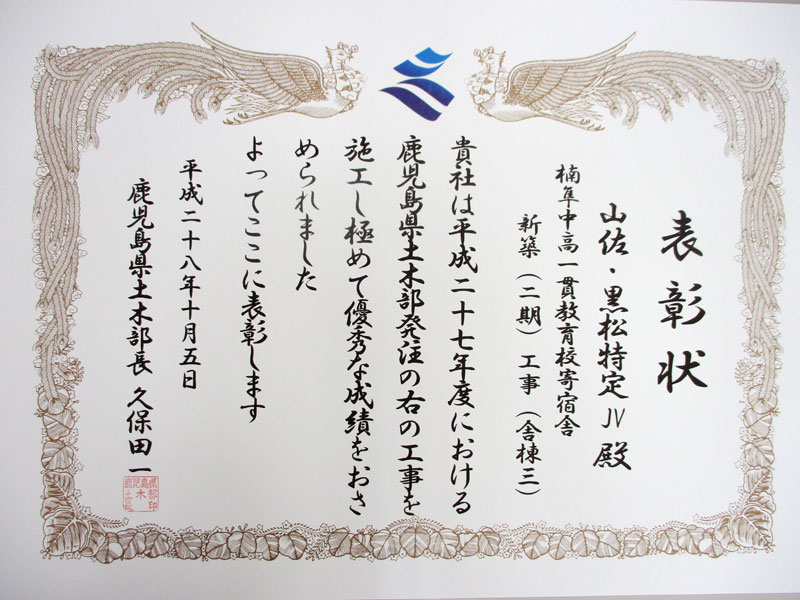 表彰状
山佐・黒松特定JV殿
楠隼中高一貫教育校寄宿舎
新築（二期）工事（舎棟三）
貴社は平成二十七年度における
鹿児島県土木部発注の右の工事を
施工し極めて優秀な成績をおさ
められました
よってここに表彰します
平成二十八年十月五日
鹿児島県土木部長 久保田一